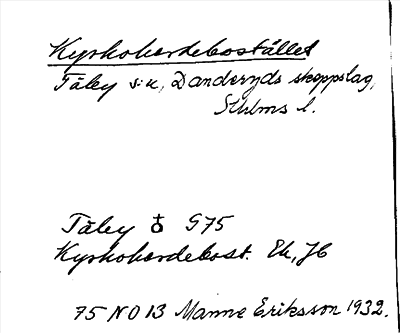 Kyrkoherdebostället
Täby s:n, Danderyds skeppslag,
Sthlms l.
Täby ♁ G75
Kyrkoherdebost. Ek, JC
75 NO 13 Manne Eriksson 1932.